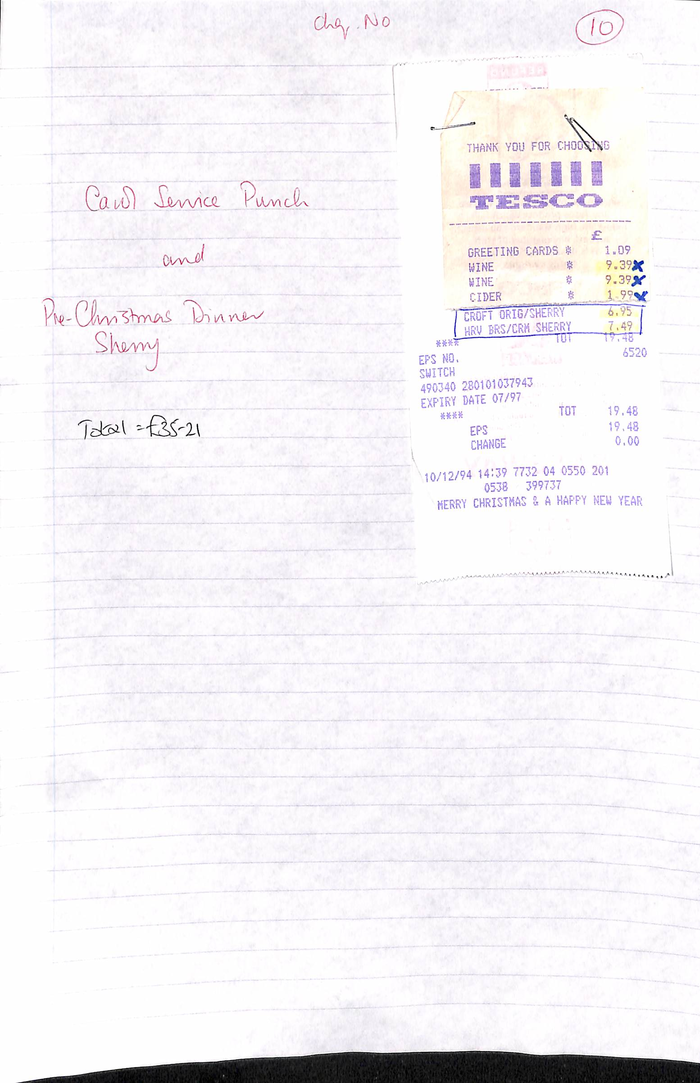 Chq. No
10
Carol Service Punch
and
Pre-Christmas Dinner
Sherry
Total = £35-21
THANK YOU FOR CHOOSING
TESCO
£
GREETING CARDS * 1.09
WINE * 9.39
WINE * 9.39
CIDER * 1.99
CROFT ORIG/SHERRY 6.95
HRV BRS/CRM SHERRY 7.49
**** TOT 19.48
EPS NO. 6520
SWITCH
490340 280101037943
EXPIRY DATE 07/97
**** TOT 19.48
EPS 19.48
CHANGE 0.00
10/12/94 14:39 7732 04 0550 201
0538 399737
MERRY CHRISTMAS & A HAPPY NEW YEAR